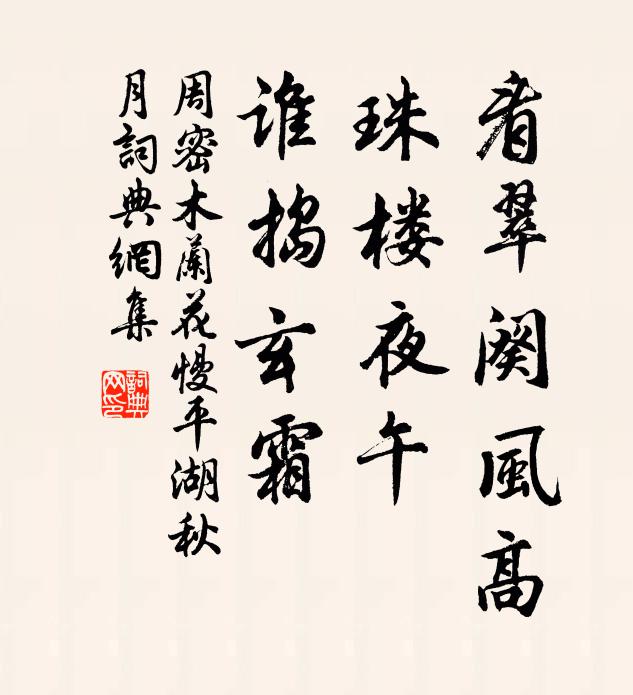 看翠闕風高
珠楼夜午
谁捣玄霜
周密木蘭花慢平湖秋
月詞典網集
詞典
网印